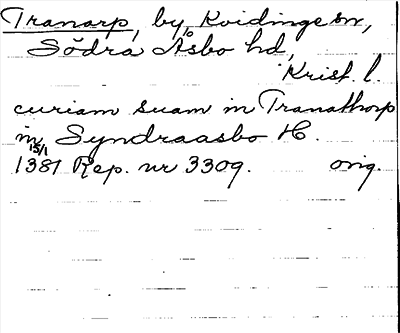 Tranarp, by, Kvidinge sn,
Södra Åsbo hd,
Krist. l.
curiam suam in Tranathorp
in Syndraasbo H.
15/1
1381 Rep. nr 3309. orig.